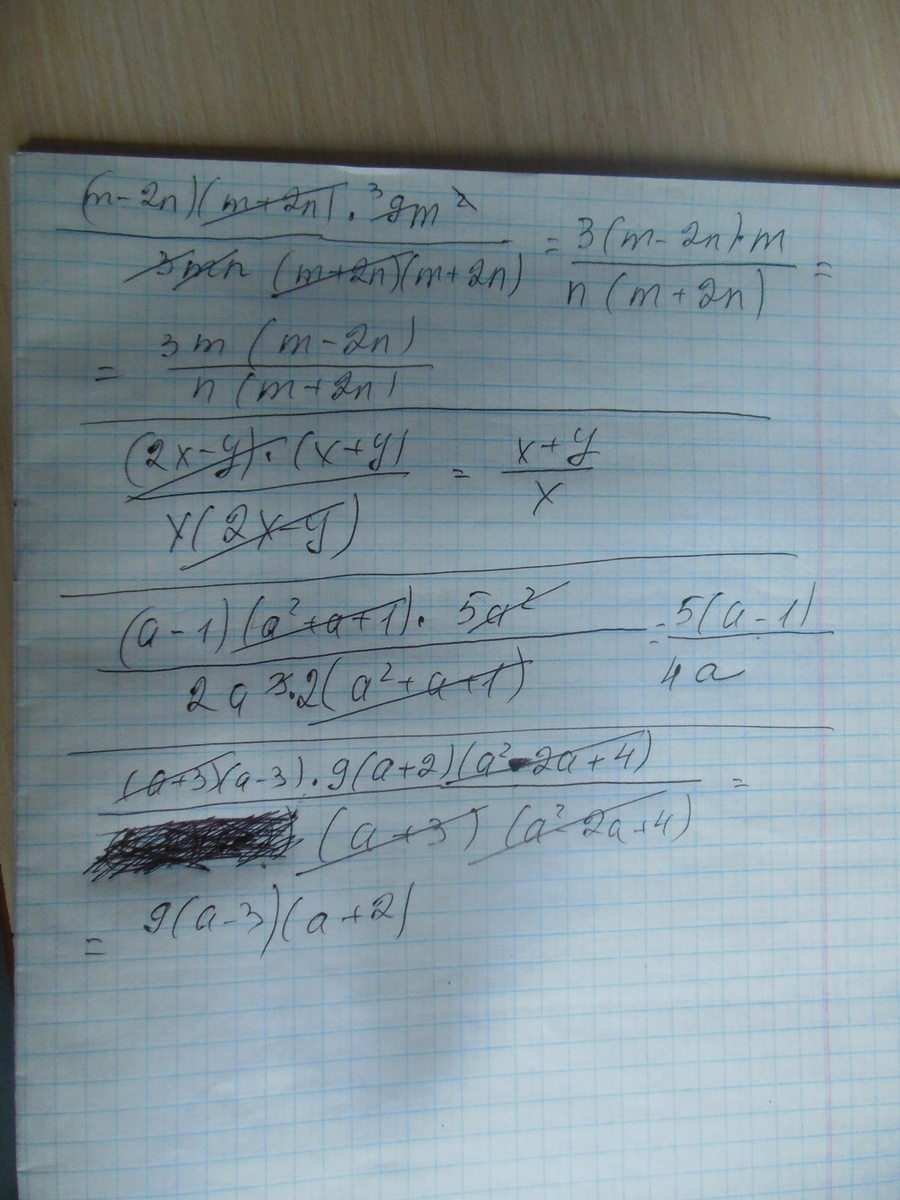 (m-2n)(m+2n) · ³9m² / 3mn (m+2n)(m+2n) = 3(m-2n)·m / n(m+2n) =
= 3m(m-2n) / n(m+2n)
(2x-y)·(x+y) / x(2x-y) = x+y / x
(a-1)(a²+a+1)· 5a² / 2a³·2(a²+a+1) = 5(a-1) / 4a
(a+3)(a-3)·9(a+2)(a²-2a+4) / (a+3)(a²-2a+4) =
= 9(a-3)(a+2)